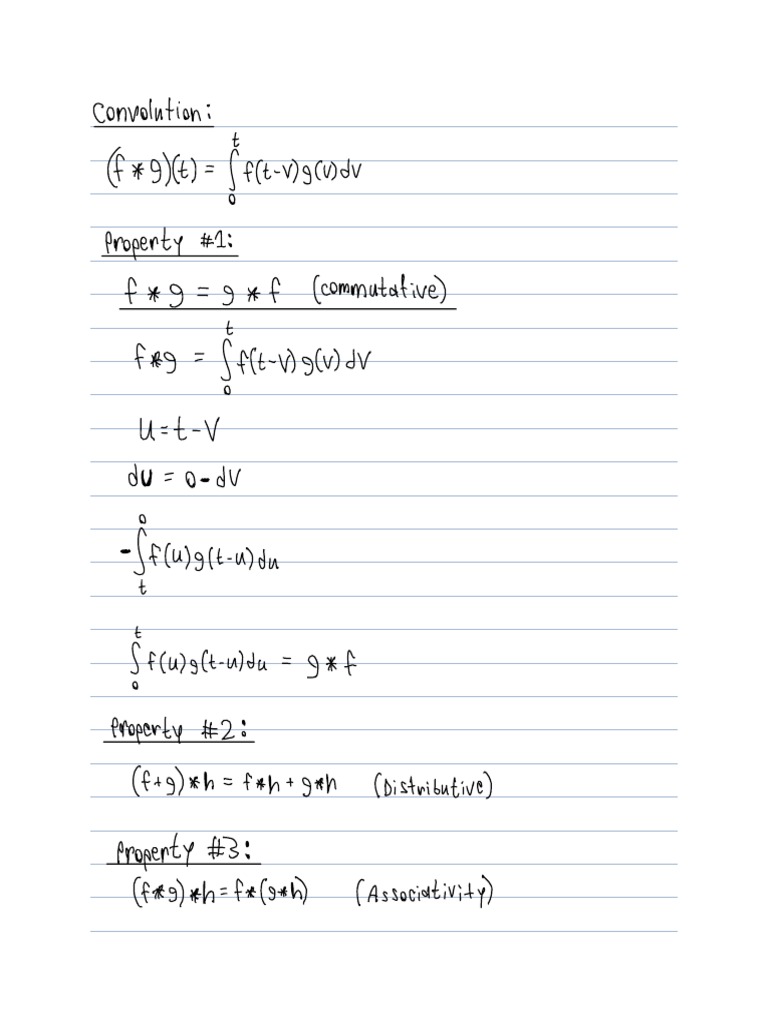 Convolution:
(f * g)(t) = ∫₀ᵗ f(t-v)g(v)dv
Property #1:
f * g = g * f (commutative)
f*g = ∫₀ᵗ f(t-v)g(v)dv
u = t - v
du = 0 - dv
-∫ₜ⁰ f(u)g(t-u)du
∫₀ᵗ f(u)g(t-u)du = g * f
Property #2:
(f+g)*h = f*h + g*h (Distributive)
Property #3:
(f*g)*h = f*(g*h) (Associativity)